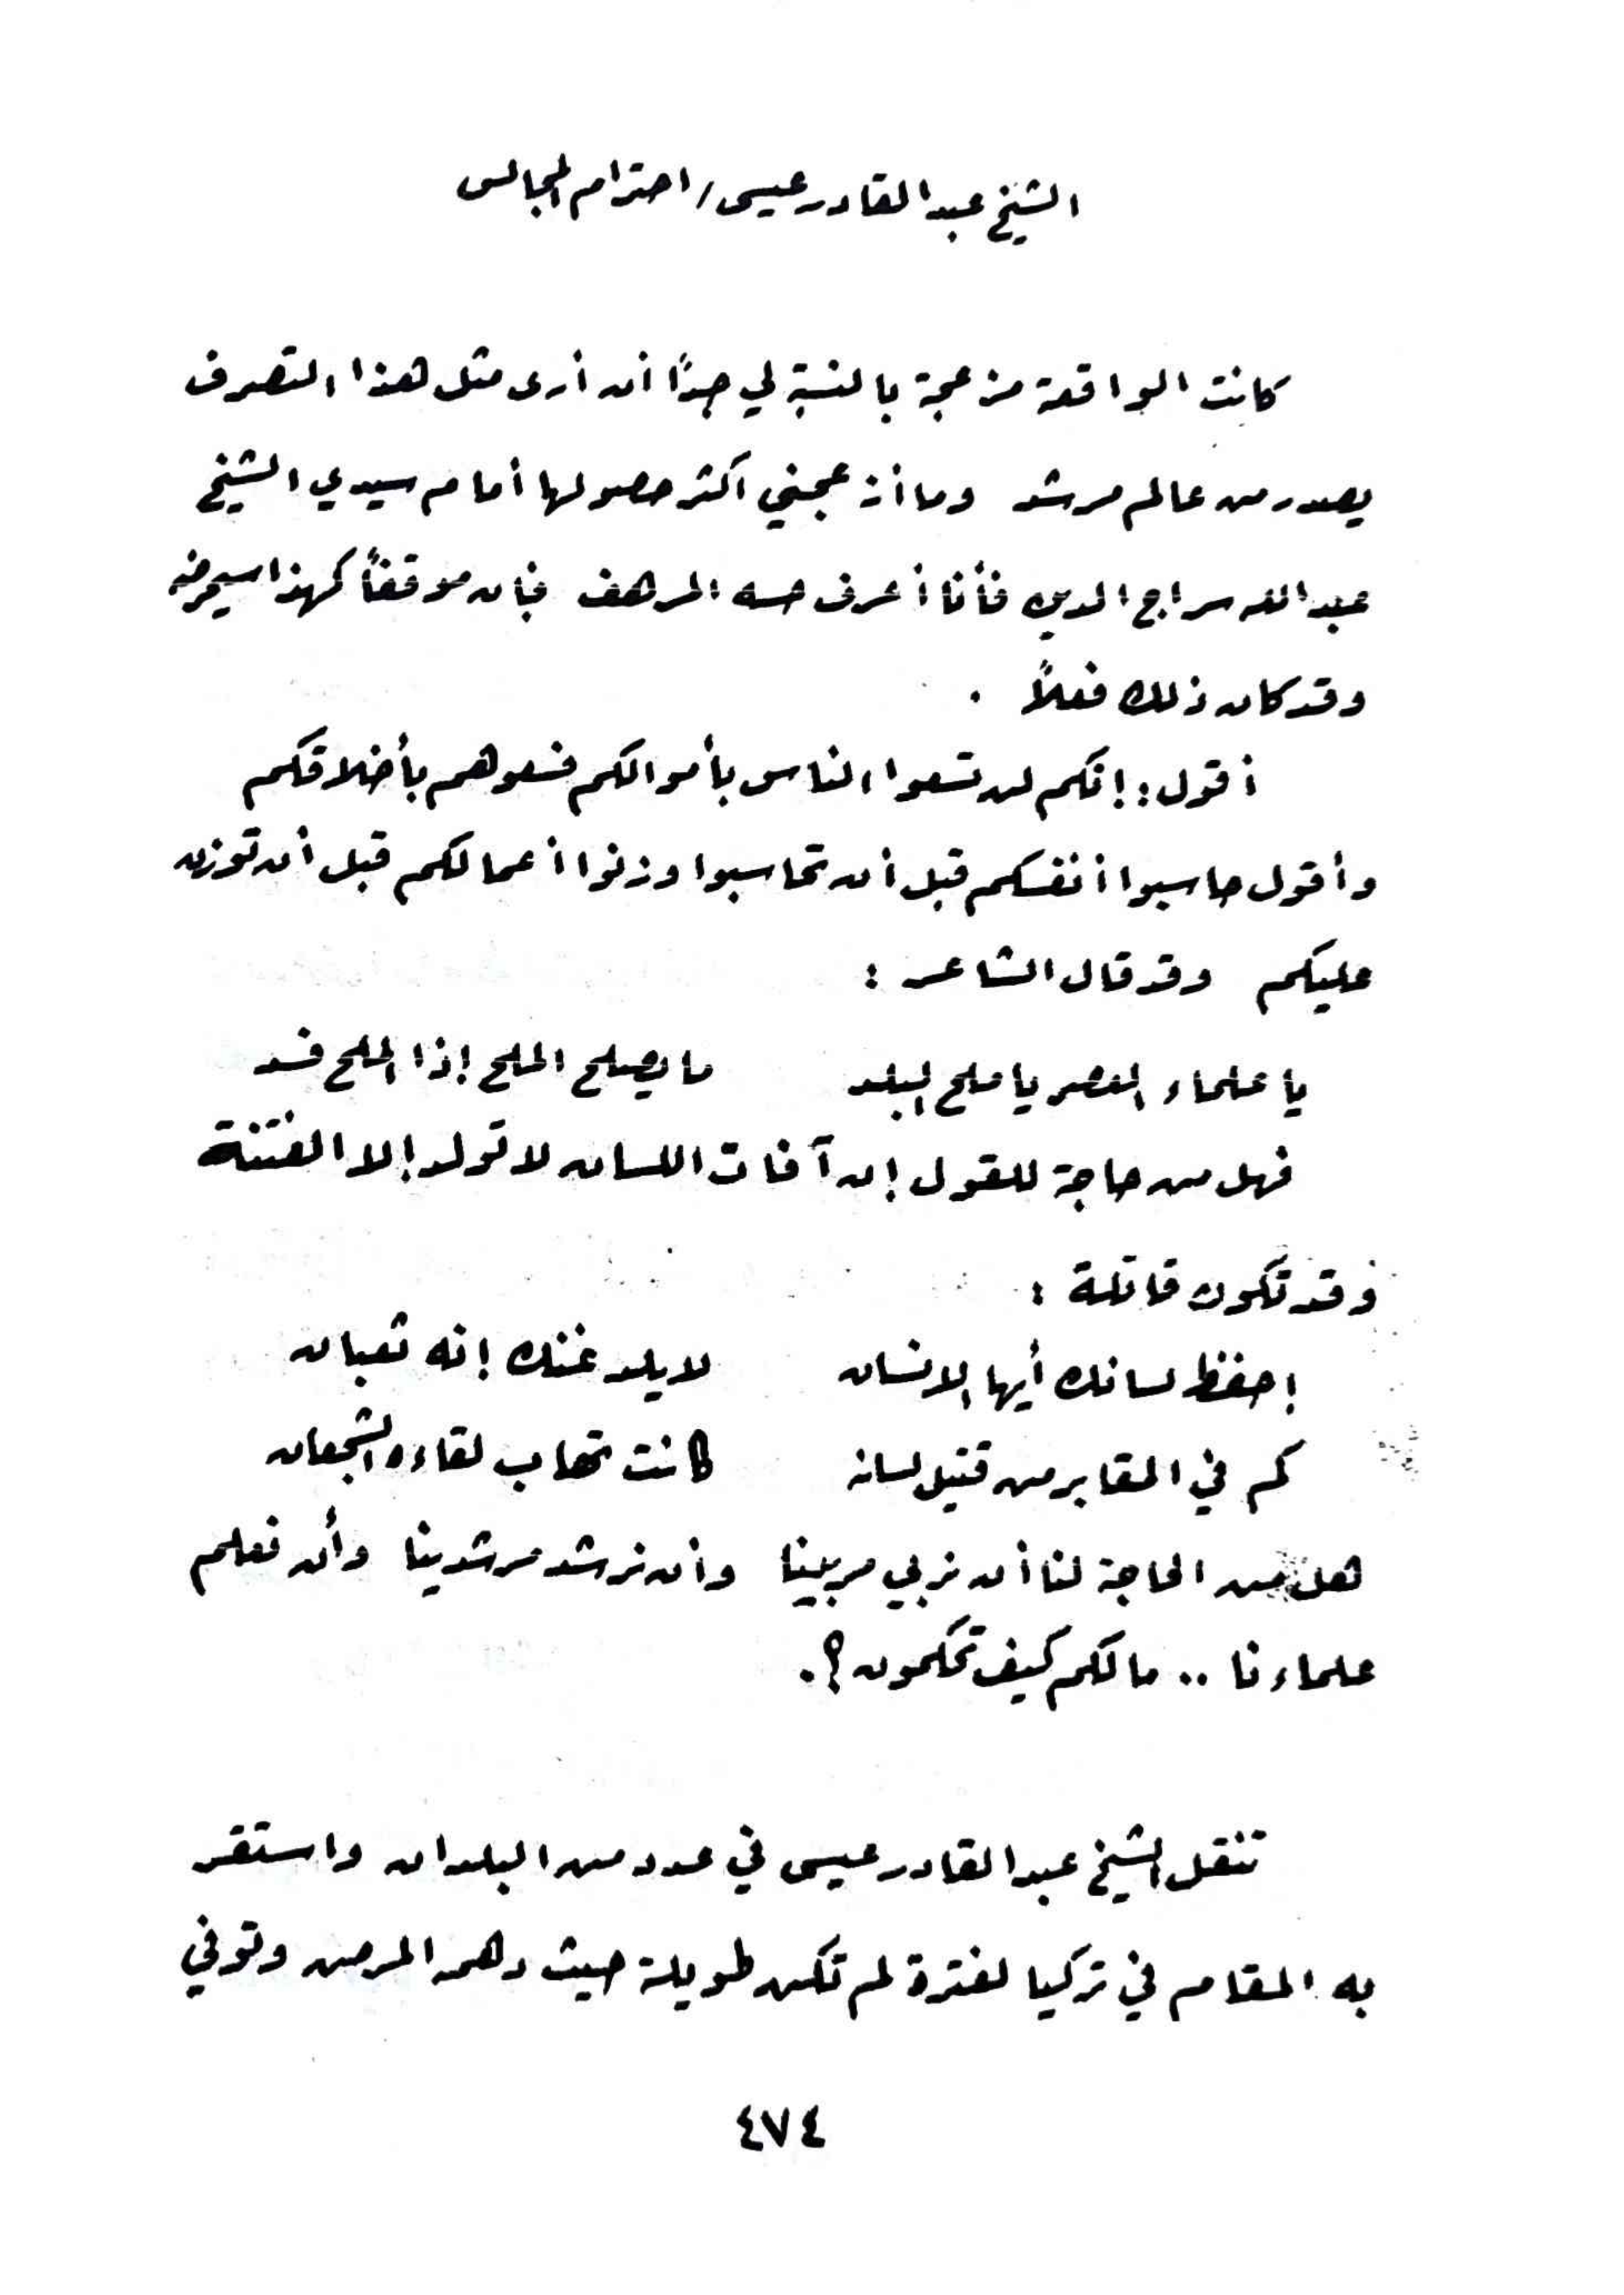 الشيخ عبد القادر عيسى / احترام المجالس
كانت الواقعة مزعجة بالنسبة لي جدًا أن أرى مثل هذا التصرف
يصدر من عالم مرشد وما أزعجني أكثر حصولها أمام سيدي الشيخ
عبد الله سراج الدين فأنا أعرف حسه المرهف فإن موقفاً كهذا سيمرضه
وقد كان ذلك فعلاً .
أقول : إنكم لن تسعوا الناس بأموالكم فسعوهم بأخلاقكم
وأقول حاسبوا أنفسكم قبل أن تحاسبوا وزنوا أعمالكم قبل أن توزن
عليكم وقد قال الشاعر :
يا علماء العصر يا ملح البلد ما يصلح الملح إذا الملح فسد
فهل من حاجة للقول إن آفات اللسان لا تولد إلا الفتنة
وقد تكون قاتلة :
إحفظ لسانك أيها الانسان لا يلدغنك إنه ثعبان
كم في المقابر من قتيل لسانه كانت تهاب لقاءه الشجعان
هل من الحاجة لنا أن نربي مربينا وأن نرشد مرشدينا وأن نعلم
علماءنا .. مالكم كيف تحكمون ؟.
تنقل الشيخ عبد القادر عيسى في عدد من البلدان واستقر
به المقام في تركيا لفترة لم تكن طويلة حيث دهمه المرض وتوفي
٤٧٤